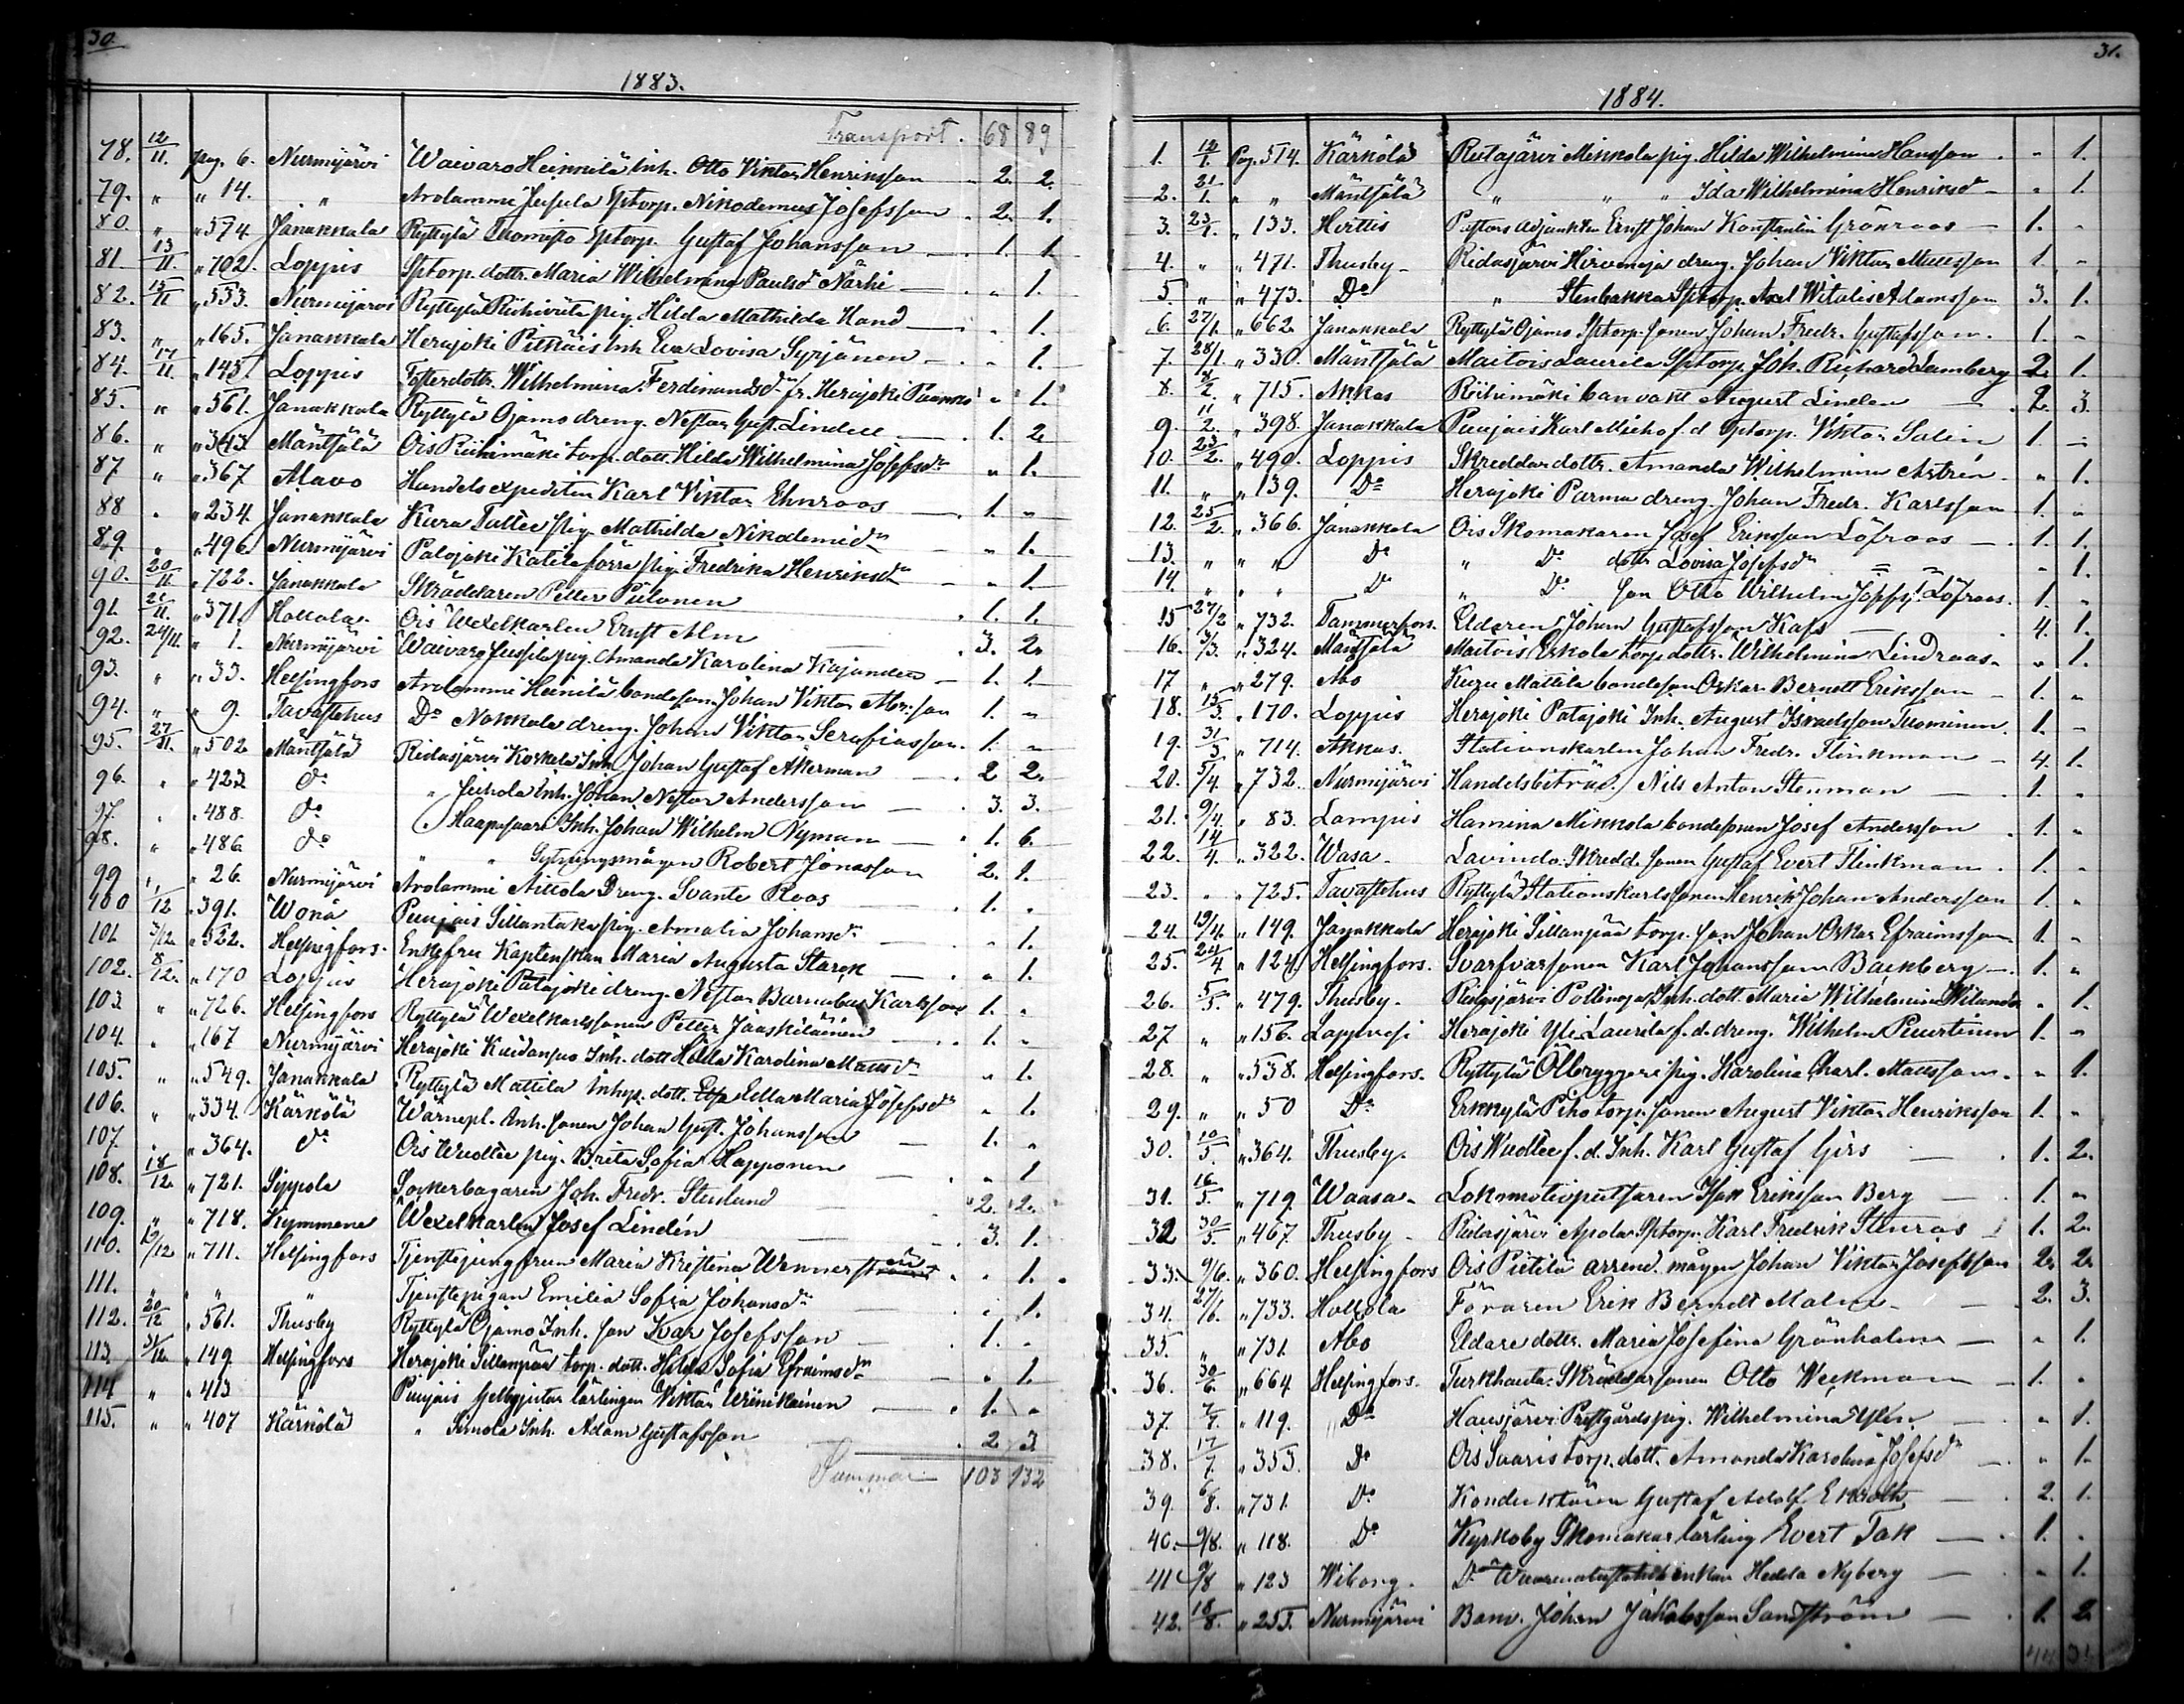 30.
1883.
Transport. 68 89
78. 12/11. pag. 6. Nurmijärvi Waivaro Heinnilä Inh. Otto Viktor Henriksson 2. 2.
79. " " 14. " Arolammi Sptorp. Nikodemus Josefsson 2. 1.
80. " " 574. Janakkala Ryttylä Tuomisto Sptorp. Gustaf Johansson 1. 1.
81 13/11. " 702. Loppis Sptorp. dottr. Maria Wilhelmina Paulsdr Närhi " 1.
82. 15/11 " 533. Nurmijärvi Ryttylä pig. Hilda Mathilda Hand " 1.
83. " " 165. Janakkala Herajoki Pitkäis Inh. Eva Lovisa Syrjänen " 1.
84. 17/11. " 145. Loppis Fosterdottr. Wilhelmina Ferdinandsdr fr. Herajoki " 1.
85. " " 561. Janakkala Ryttylä Ojamo dreng. Nestor Gust. Lindell 1. 2.
86. " " 343. Mäntsälä Ois Riihimäki torp. dott. Hilda Wilhelmina Josefsdr " 1.
87 " " 367 Alavo Handelsexpeditin Karl Viktor Ehnroos 1. "
88 " " 234. Janakkala Kara Tallee pig. Mathilda Nikodemidr " 1.
89. " " 496. Nurmijärvi Palojoki Katila pig. Fredrika Henriksdr " 1.
90. 20/11 " 722. Janakkala Skräddaren Petter Piilonen 1. 1.
91. 21/11. " 371. Hollola. Ois Wexelkarlen Ernst Alm 3. 2.
92. 24/11. " 1. Nurmijärvi Waivaro pig. Amanda Karolina Kajander 1. 1.
93. " " 33. Helsingfors Arolammi Heinilä bondeson Johan Viktor 1. "
94. " " 9. Tavastehus Do Nokkala dreng. Johan Viktor Serafiasson 1. "
95. 27/11. " 502 Mäntsälä Ridasjärvi Koskela Inh. Johan Gustaf Åkerman 2 2.
96. " " 423. Do " Inh. Johan Nestor Andersson 3. 3.
97. " " 488. Do " Haapasaari Inh. Johan Wilhelm Nyman 1. 6.
98. " " 486 Do " " Sytningsmågen Robert Jonasson 2. 1.
99 " " 26. Nurmijärvi Arolammi Aittola Dreng. Svante Roos 1. "
100 /12 " 391. Wonå Punjais Sillantaka pig. Amalia Johansdr " 1.
101 3/12 " 522. Helsingfors. Enkefru Kaptenskan Maria Augusta Starck " 1.
102. 8/12. " 170 Loppis Herajoki Patajoki dreng. Nestor Barnabas Karlsson 1. "
103. " " 726. Helsingfors Ryttylä Wexelkarlssonen Petter Jääskeläinen 1. "
104. " " 167 Nurmijärvi Herajoki Kuidansuo Inh. dott Hilda Karolina Mattsdr " 1.
105. " " 549. Janakkala Ryttylä Mattila Inhys. dott. Ella Maria Josefsdr " 1.
106. " " 334. Kärkölä Wärnepl. Inh. sonen Johan Gust. Johansson 1. "
107. " " 364. Do Ois Wudlee pig. Brita Sofia Happonen " 1
108. 18/12. " 721. Sippola Sockerbagaren Joh. Fredr. Stenlund 2. 2.
109. " " 718. Kymmene Wexelkarlen Josef Lindén 3. 1.
110. 19/12 " 711. Helsingfors Tjenstejungfrun Maria Kristina " 1.
111. " " " Tjenstepigan Emilia Sofia Johansdr " 1.
112. 20/12 " 561. Thusby Ryttylä Ojamo Inh. son Ivar Josefsson 1. "
113. 31/12 " 149. Helsingfors Herajoki Sillanpää torp. dott. Hilda Sofia Efraimsdr " 1.
114 " " 413 " Punjais lärlingen Viktor 1. "
115. " " 407 Kärkölä " Simola Inh. Adam Gustafsson 2 3.
Summa 103 132
31.
1884.
1. 12/1. Pag. 514. Kärkölä Rutajärvi Mikkola pig. Hilda Wilhelmina Hansson " 1.
2. 21/1. " " Mäntsälä " " " Ida Wilhelmina Henriksdr " 1.
3. 23/1. " 133. Hvittis Pastors adjunkten Ernst Johan Konstantin Grönroos 1. "
4. " " 471. Thusby Ridasjärvi Hirvenoja dreng. Johan Viktor Mattsson 1. "
5. " " 473. Do " Stenbacka Sptorp. Axel Witalis Adamsson 3. 1.
6. 27/1. " 662. Janakkala Ryttylä Ojamo Sptorp. sonen Johan Fredr. Gustafsson. 1. "
7. 28/1. " 330. Mäntsälä Maitois Laurila Sptorp. Joh. Richard Lamberg 2. 1.
8. /2. " 715. Akkas Riihimäki banvakt August Lindén 2. 3.
9. 11/2. " 398. Janakkala Punjais Karl f.d. Sptorp. Viktor Salin 1. "
10. 23/2. " 490. Loppis Skreddardottr. Amanda Wilhelmina Astrén. " 1.
11. " " 139. Do Herajoki Parma dreng. Johan Fredr. Karlsson 1. "
12. 25/2. " 366. Janakkala Ois Skomakaren Josef Eriksson Löfroos 1. 1.
13. " " " Do " Do dottr Lovisa Josefsdr " 1.
14. " " " Do " Do son Otto Wilhelm Löfroos. 1. "
15 27/2 " 732. Tammerfors. Eldaren Johan Gustafsson Kass 4. 1.
16. 3/3. " 324. Mäntsälä Maitois Eskola torp. dottr. Wilhelmina Lindroos. " 1.
17 " " 279. Åbo Kuru Mattila bondeson Oskar Berndt Eriksson 1. "
18. 15/3. " 170. Loppis Herajoki Patajoki Inh. August Israelsson Tuominen. 1. "
19. 31/3 " 714. Akkas. Stationskarlen Johan Fredr. Flinkman 4. 1.
20. 5/4. " 732. Nurmijärvi Handelsbiträd. Nils Anton Stenman 1. "
21. 9/4. " 83. Lampis Hamina Mikkola bondesonen Josef Andersson 1. "
22. 14/4. " 322. Wasa. Lavinda Skredd. sonen Gustaf Evert Flinkman 1. "
23. " " 725. Tavastehus Ryttylä Stationskarlssonen Henrik Johan Andersson 1. "
24. 19/4. " 149. Janakkala Herajoki Sillanpää torp. son Johan Oskar Efraimsson. 1. "
25. 24/4 " 124. Helsingfors. Svarfvarsonen Karl Johansson Backberg 1. "
26. 5/5. " 479. Thusby. Ridasjärvi Inh. dott. Maria Wilhelmina Wilander " 1.
27 " " 156. Lappvesi Herajoki Yli Laurila f.d. dreng. Wilhelm Puurtinen 1. "
28. " " 538. Helsingfors. Ryttylä Ölbryggeri pig. Karolina Charl. Mattsson. " 1.
29. " " 50 Do Erkkylä Piho torp. sonen August Viktor Henriksson 1. "
30. 10/5. " 364. Thusby. Ois Wudlee f.d. Inh. Karl Gustaf Girs 1. 2.
31. 16/5. " 719. Waasa. Lokomotivputsaren Isak Eriksson Berg 1. "
32 30/5. " 467 Thusby Ridasjärvi Apola Sptorp. Karl Fredrik Stenros 1. 2.
33. 9/6. " 360. Helsingfors Ois Pietilä arrend. mågen Johan Viktor Josefsson 2. 2.
34. 27/6. " 733. Hollola Föraren Erik Berndt Malm 2. 3.
35. " " 731. Åbo Eldare dottr. Maria Josefina Grönholm " 1.
36. 30/6. " 664 Helsingfors. Turkhauta Skräddarsonen Otto Weckman 1. "
37. 7/7. " 119. Do Hausjärvi Prestgårds pig. Wilhelmina Ylén " 1.
38. 17/7. " 353. Do Ois Suaris torp. dott. Amanda Karolina Josefsdr " 1.
39. 6/8. " 731. Do Konduktören Gustaf Adolf Ekroth 2. 1.
40. 9/8. " 118. Do Kyrkoby Skomakar lärling Evert Tak 1. "
41 9/8 " 123 Wiborg. Do Hedda Nyberg " 1.
42. 18/8. " 255. Nurmijärvi Banv. Johan Jakobsson Sandström 1. 2
44 31